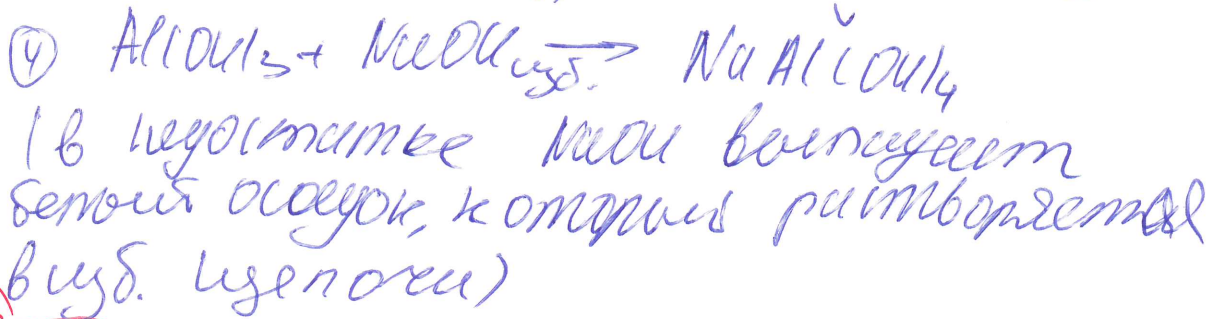 ④ Al(OH)3 + NaOH изб. → NaAl(OH)4
(в недостатке NaOH выпадает
белый осадок, который растворяется
в изб. щелочи)